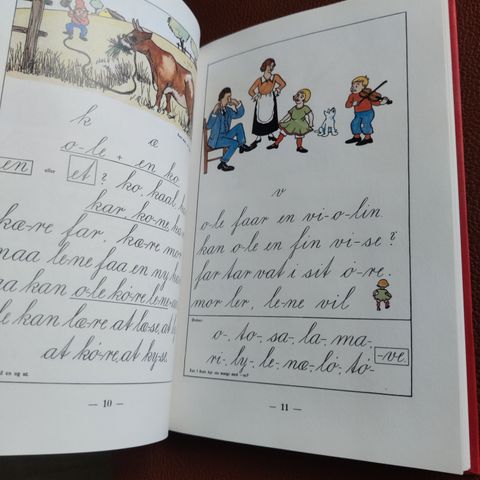 k æ
o-le + en ko
en eller et ? ko, kaal,
kar ko-ne,
kæ-re far, kæ-re mor
maa le-ne faa en ny
kan o-le kó-re le-ne
le kan læ-re at læ-se, at
at kó-re, at ky-se.
en og et.
— 10 —
v
o-le faar en vi-o-lin.
kan o-le en fin vi-se?
far tar vat i sit ó-re.
mor ler, le-ne vil
o-, to-, sa-, la-, ma-,
ri-, ly-, le-, næ-, ló-, tó-
-ve.
— 11 —